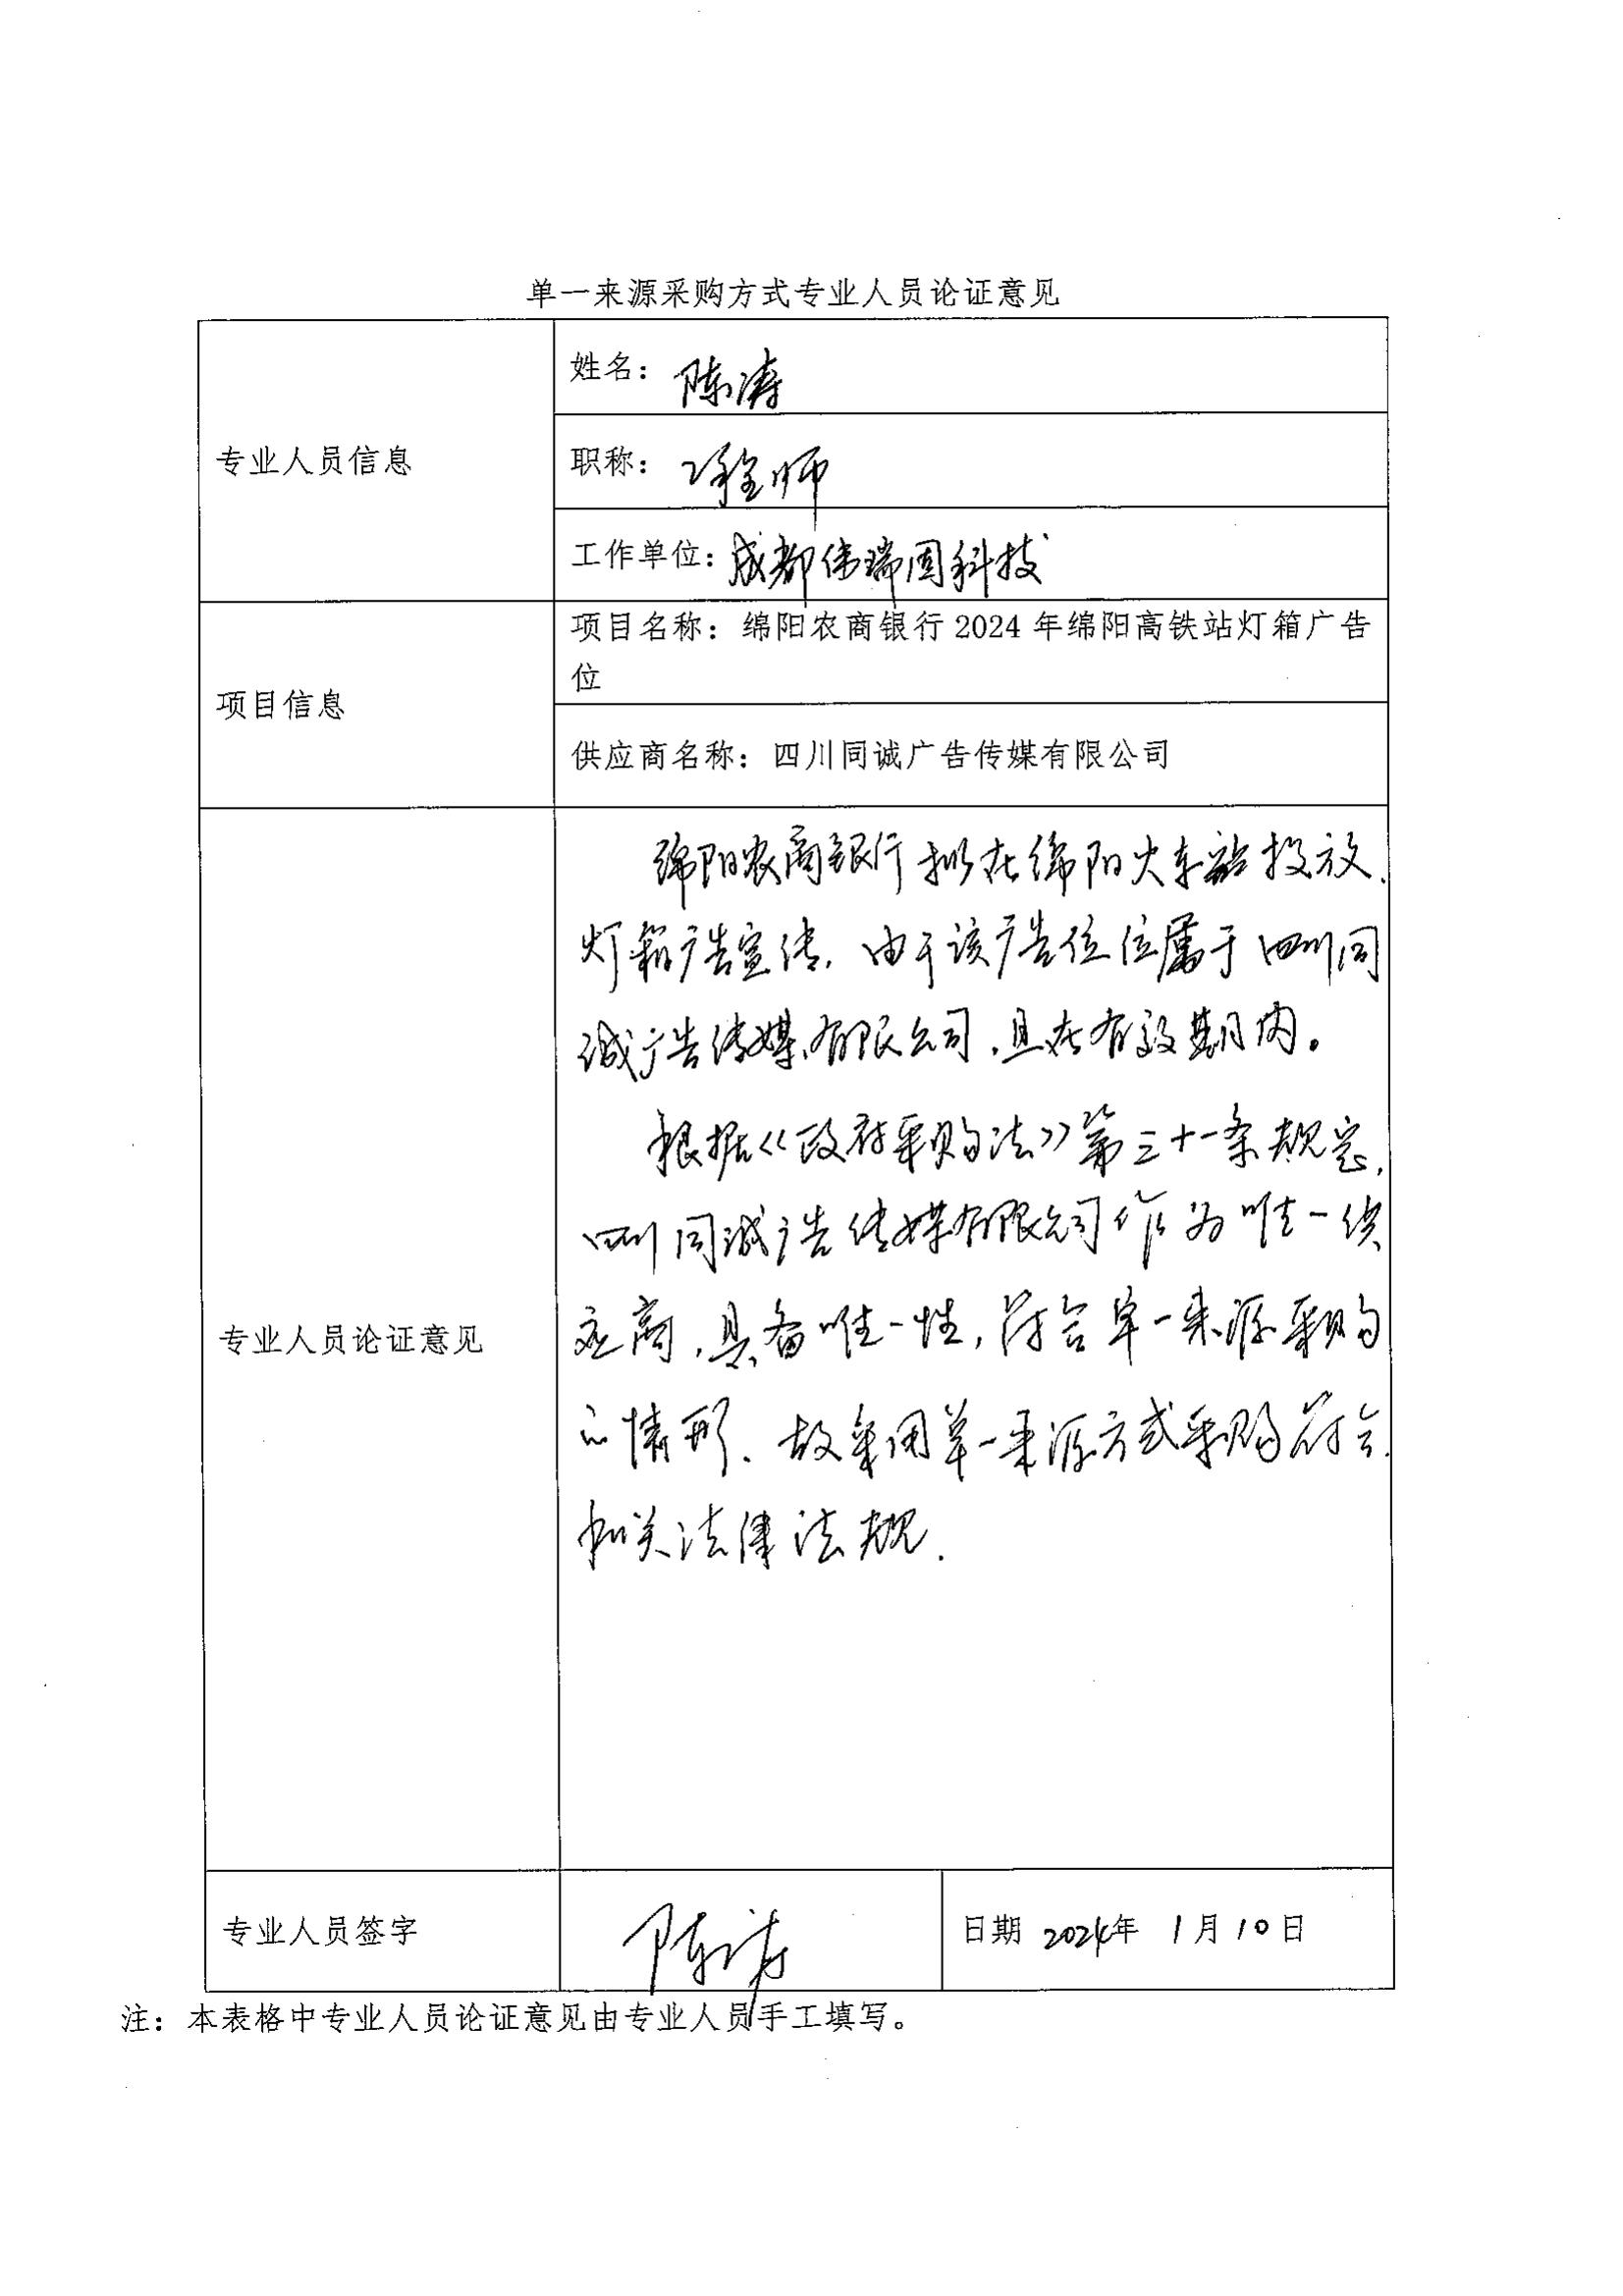 单一来源采购方式专业人员论证意见
专业人员信息
姓名：陈涛
职称：工程师
工作单位：成都伟瑞固科技
项目信息
项目名称：绵阳农商银行2024年绵阳高铁站灯箱广告
位
供应商名称：四川同诚广告传媒有限公司
专业人员论证意见
绵阳农商银行拟在绵阳火车站投放
灯箱广告宣传，由于该广告位位属于四川同
诚广告传媒有限公司，且在有效期内。
根据《政府采购法》第三十一条规定，
四川同诚广告传媒有限公司作为唯一供
应商，具备唯一性，符合单一来源采购
的情形，故采用单一来源方式采购符合
相关法律法规.
专业人员签字
陈涛
日期 2024年 1月10日
注：本表格中专业人员论证意见由专业人员手工填写。